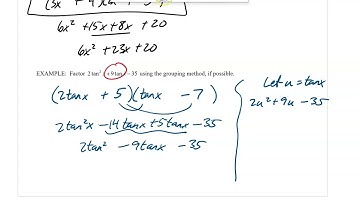 6x² + 15x + 8x + 20
6x² + 23x + 20
EXAMPLE: Factor 2 tan² +9 tan −35 using the grouping method, if possible.
(2tanx + 5)(tanx − 7)
2tan²x − 14tanx + 5tanx − 35
2tan² − 9tanx − 35
Let u = tanx
2u² + 9u − 35